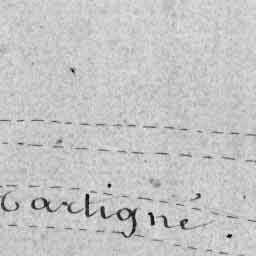 Martigné.